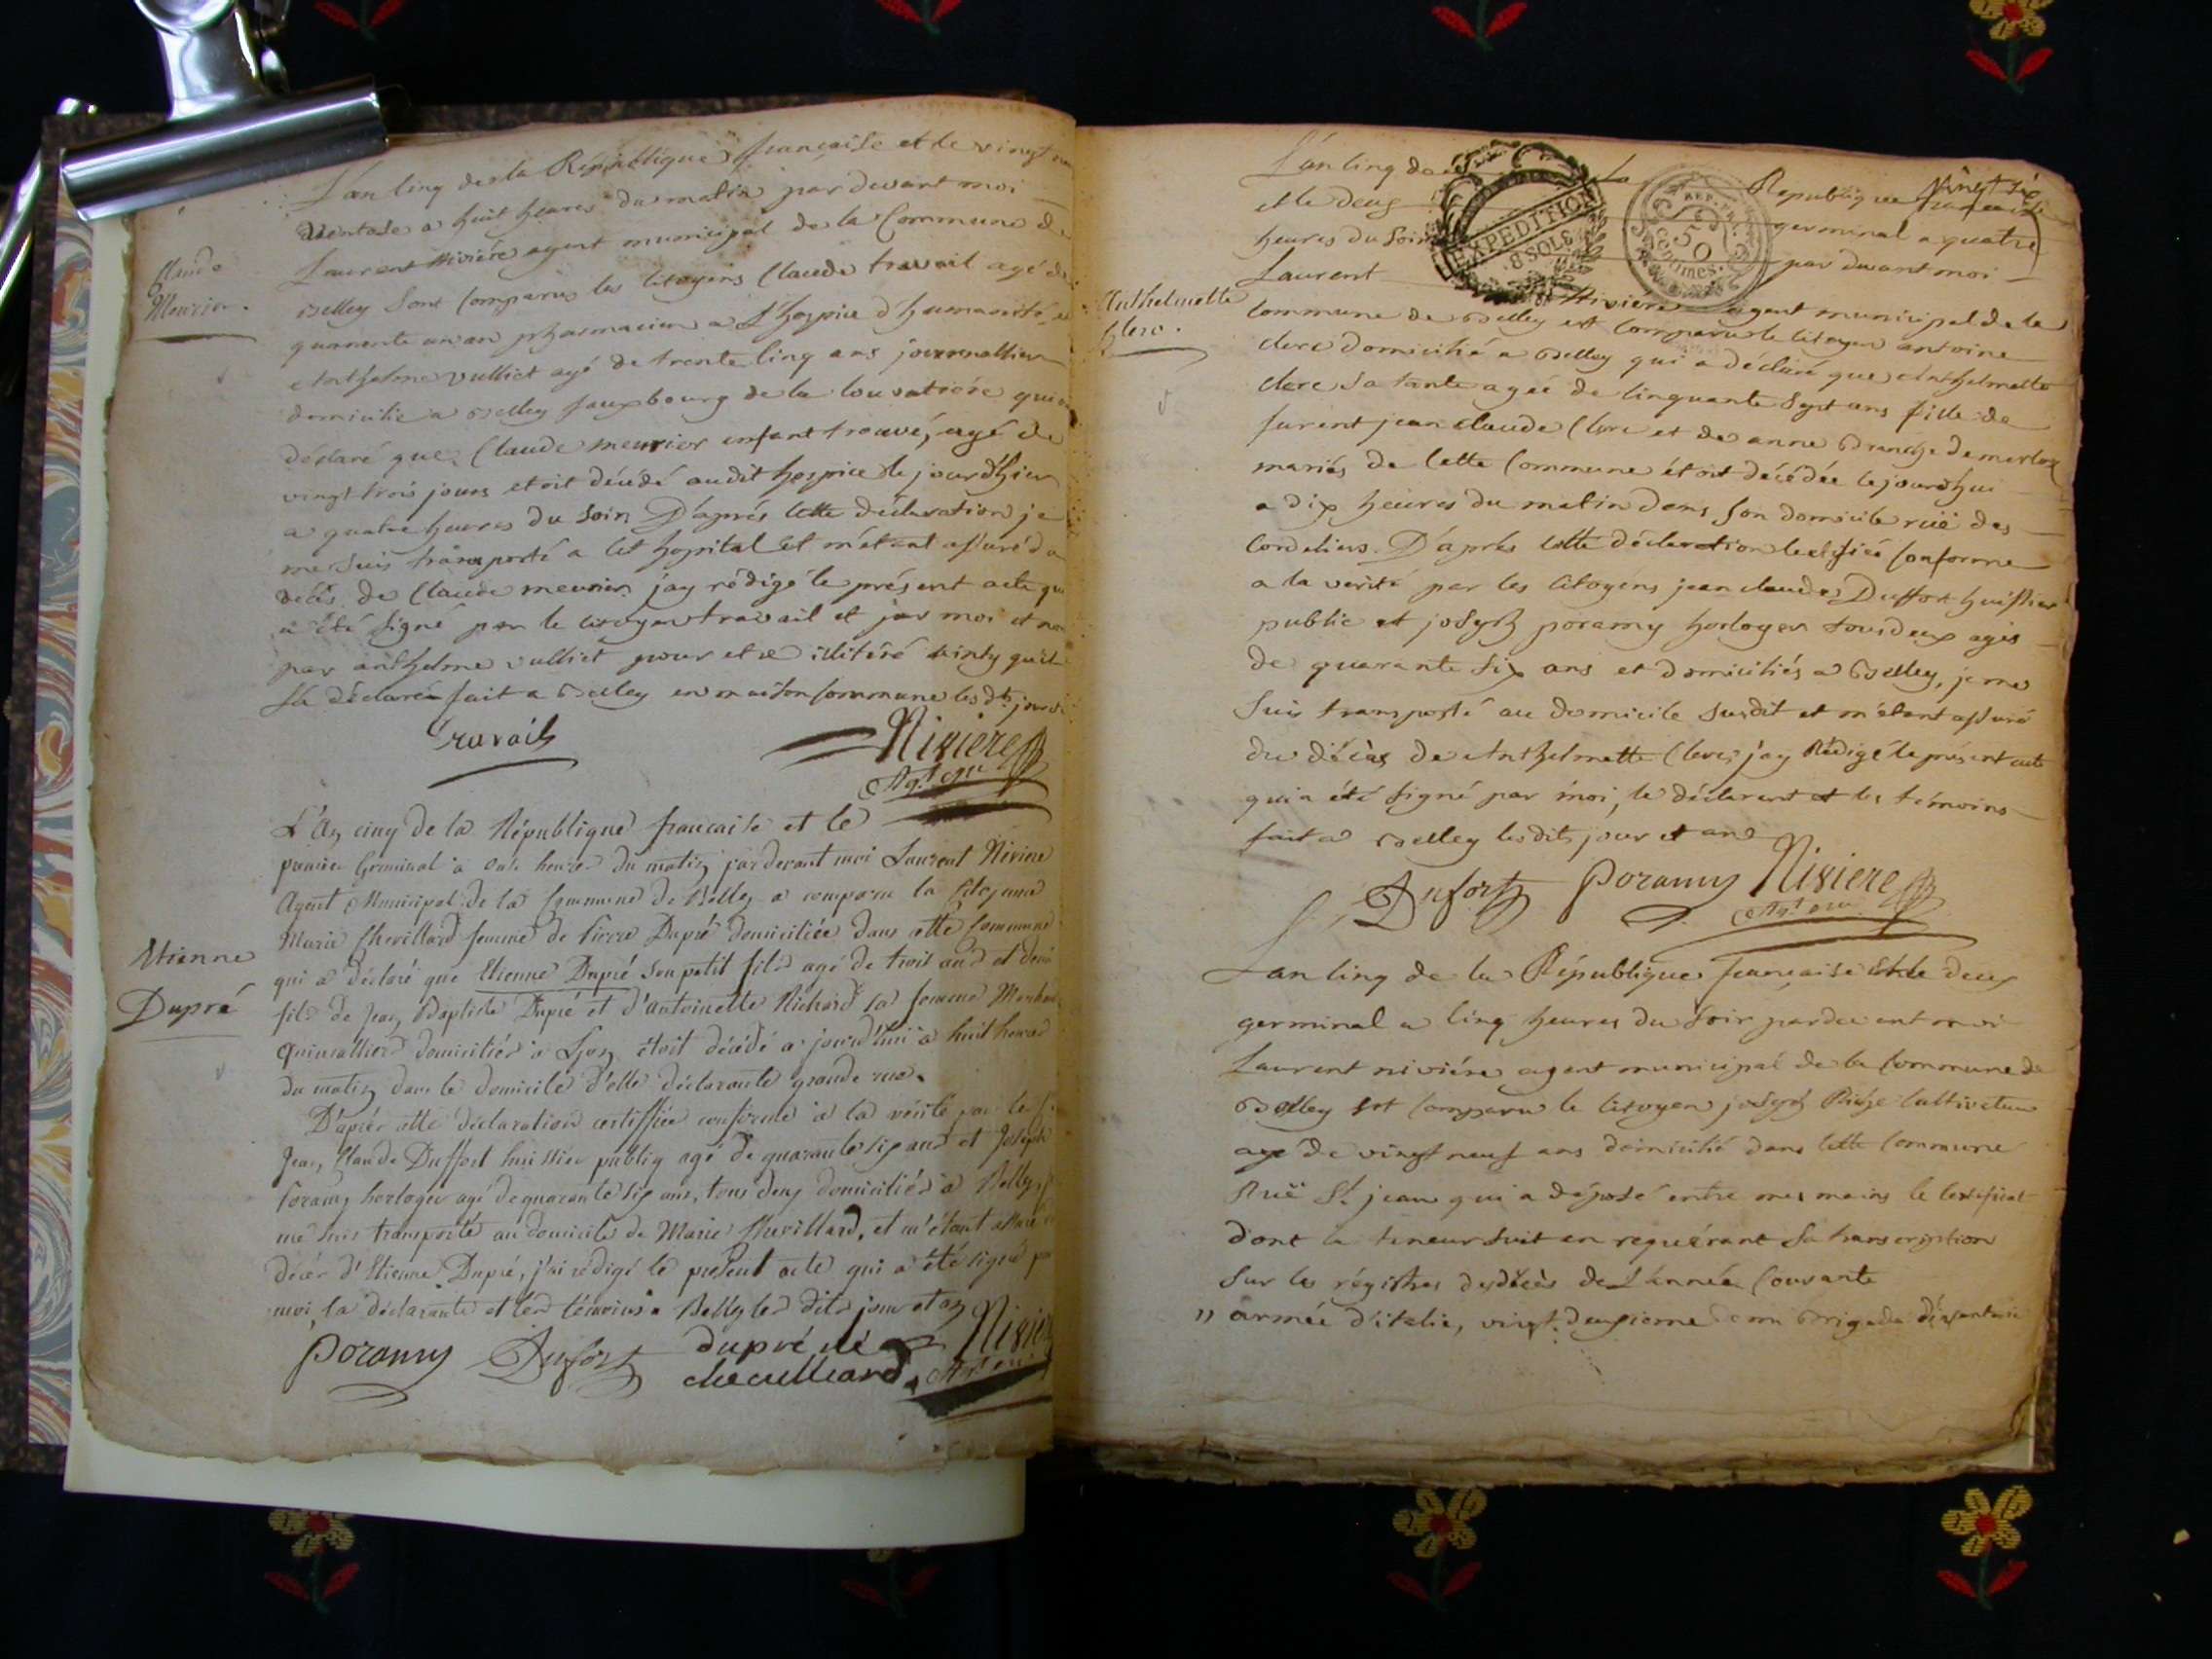 L'an cinq de la République française et le vingt
ventose a huit heures du matin par devant moi
Laurent Nivière agent municipal de la Commune de
Belley sont Comparus les citoyens Claude travail agé de
quarante un an pharmacien a L'hospice d'humanité et
Anthelme vulliet agé de trente cinq ans journallier
domicilié a Belley fauxbourg de la louvatiére qui
déclaré que Claude meunier enfant trouvé, agé de
vingt trois jours etoit décédé audit hospice le jourd'hier
a quatre heures du soir D'aprés cette déclaration je
me suis transporté a cet hopital et m'étant assuré du
décés de Claude meunier jay rédigé le présent acte qui
a été signé par le citoyen travail et par moi et non
par anthelme vulliet pour etre illitéré ainsy qu'il
la déclaré fait a Belley en maison Commune les dts jour
Claude
Meunier.
Travail
Nivière
Agt mu
L'An cinq de la République francaise et le
premier Germinal à onze heures du matin pardevant moi Laurent Niviere
Agent Municipal de la Commune de Belley a comparu la Citoyenne
Marie Chevillard femme de Pierre Dupré domiciliée dans cette Commune
qui a déclaré que Etienne Dupré son petit fils agé de trois ans et demi
fils de Jean Baptiste Dupré et d'antoinette Richard sa femme
Quincalliers domiciliés à Lyon étoit décédé aujourd'hui à huit heures
du matin dans le domicile d'elle déclarante grande rue.
D'aprés cette déclaration certiffiée conforme à la vérité par les
Jean Claude Duffort huissier public agé de quarante six ans et Joseph
Poramy horloger agé de quarante six ans, tous deux domiciliés à Belley, je
me suis transporté au domicile de Marie Chevillard, et m'étant assuré du
décès d'Etienne Dupré, j'ai rédigé le présent acte qui a été signé par
moi, la déclarante et les témoins a Belley les dits jour et an
Etienne
Dupré
Poramy Dufort dupré né
chevilliard
Nivière
Agt mu
vingt six
L'an cinq de la Republique francaise
et le deux germinal a quatre
heures du soir par devant moi
Laurent Niviere agent municipal de la
EXPEDITION
8 SOLS
REP. FRA.
50
centimes.
Anthelmette
Clerc.
Commune de Belley est Comparu le citoyen antoine
clerc domicilié a Belley qui a déclaré que Anthelmette
clerc sa tante agée de cinquante sept ans fille de
furent jean claude Clerc et de anne
mariés de cette Commune étoit décédée lejourdhui
a dix heures du matin dans son domicile ruë des
Cordeliers. D'aprés cette déclaration certifiée Conforme
a la verité par les citoyens jean claude Duffort huissier
public et joseph poramy horloger tous deux agés
de quarante six ans et domiciliés a Belley, je me
suis transporté au domicile susdit et m'étant assuré
du décès de Anthelmette Clerc, jay Rédigé le présent acte
qui a été signé par moi, le déclarant et les témoins
fait a Belley lesdits jour et an
Dufort Poramy Nivière
Agt mu
L'an cinq de la République française et le deux
germinal a cinq heures du soir pardevant moi
Laurent nivière agent municipal de la Commune de
Belley est Comparu le citoyen joseph Cultivateur
agé de vingt neuf ans domicilié dans cette Commune
Ruë St. jean qui a déposé entre mes mains le Certificat
dont la teneur suit en requérant sa transcription
sur les régistres des décès de L'année Courante
" armée d'italie, vingt deuxieme demi Brigade d'infanterie